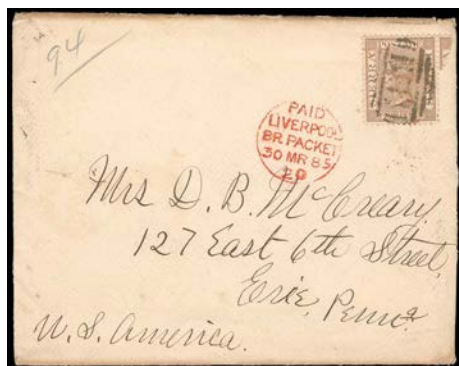 94
SIERRA
PAID
LIVERPOOL
BR. PACKET
30 MR 85
20
Mrs D. B. McCreary,
127 East 6th Street,
Erie, Penna.
U. S. America.